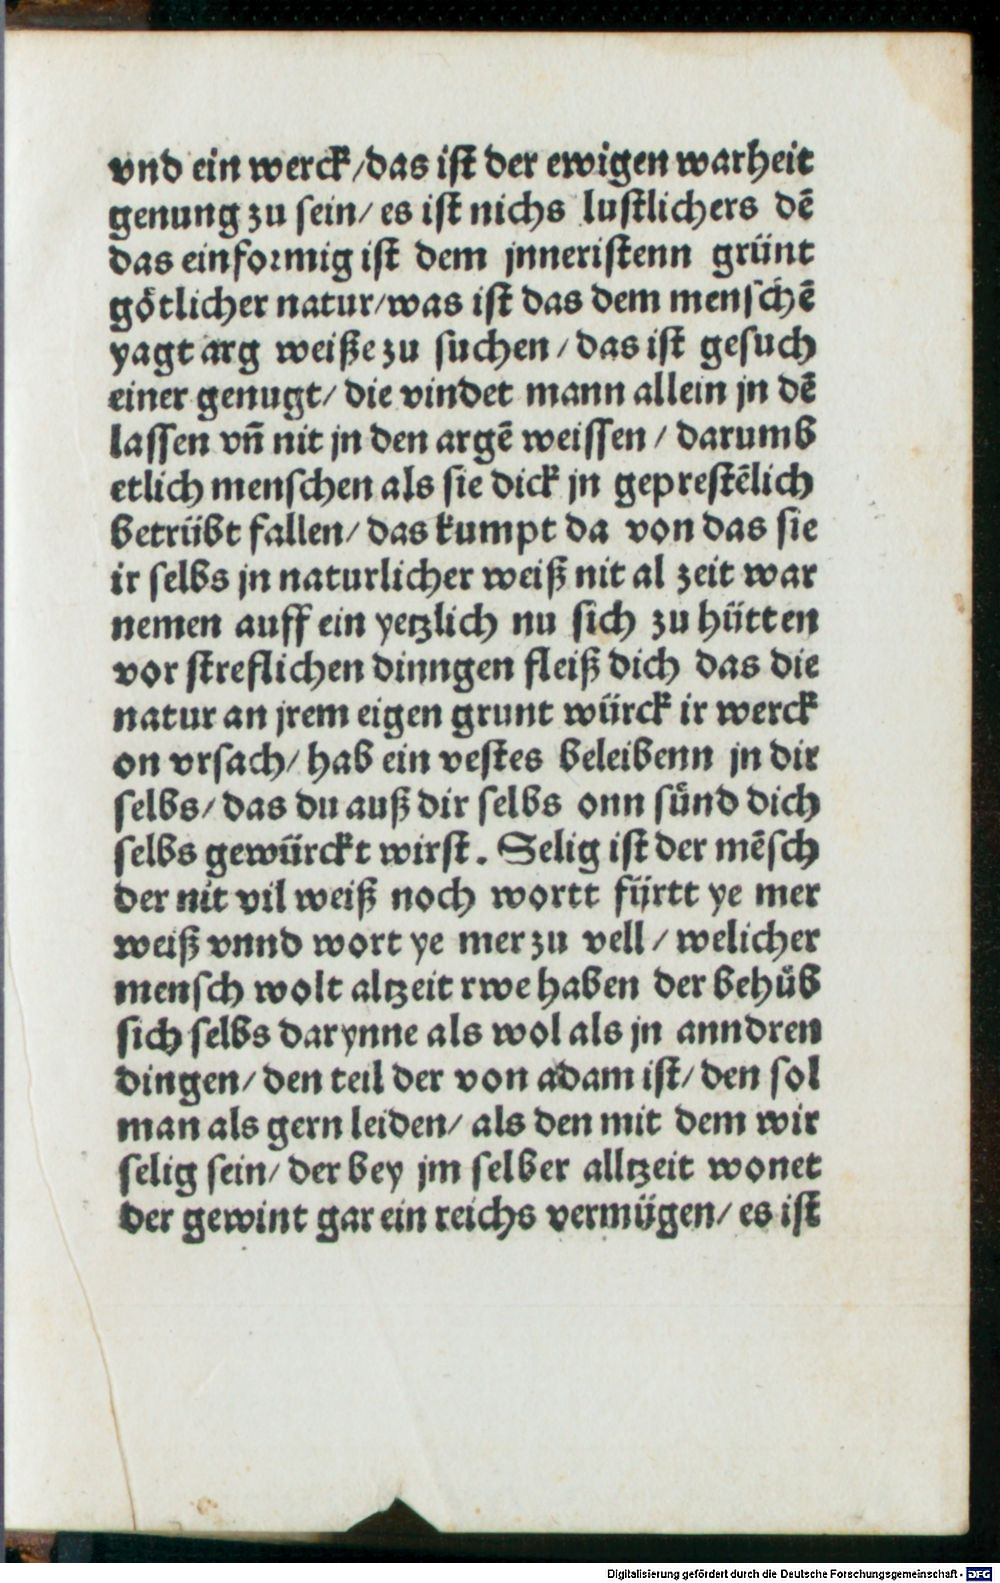 vnd ein werck/das ist der ewigen warheit
genung zu sein/ es ist nichs lustlichers dē
das einformig ist dem jnneristenn grünt
götlicher natur/was ist das dem menschē
yagt arg weiße zu suchen/das ist gesuch
einer genugt/ die vindet mann allein jn dē
lassen vñ nit jn den argē weissen/ darumb
etlich menschen als sie dick jn geprestēlich
betrübt fallen/ das kumpt da von das sie
ir selbs jn naturlicher weiß nit al zeit war
nemen auff ein yetzlich nu sich zu hütten
vor streflichen dinngen fleiß dich das die
natur an jrem eigen grunt würck ir werck
on vrsach/ hab ein vestes beleibenn jn dir
selbs/ das du auß dir selbs onn sünd dich
selbs gewürckt wirst. Selig ist der mēsch
der nit vil weiß noch wortt fürtt ye mer
weiß vnnd wort ye mer zu vell/ welicher
mensch wolt altzeit rwe haben der behüb
sich selbs darynne als wol als jn anndren
dingen/ den teil der von adam ist/ den sol
man als gern leiden/ als den mit dem wir
selig sein/ der bey jm selber alltzeit wonet
der gewint gar ein reichs vermügen/ es ist
Digitalisierung gefördert durch die Deutsche Forschungsgemeinschaft - DFG